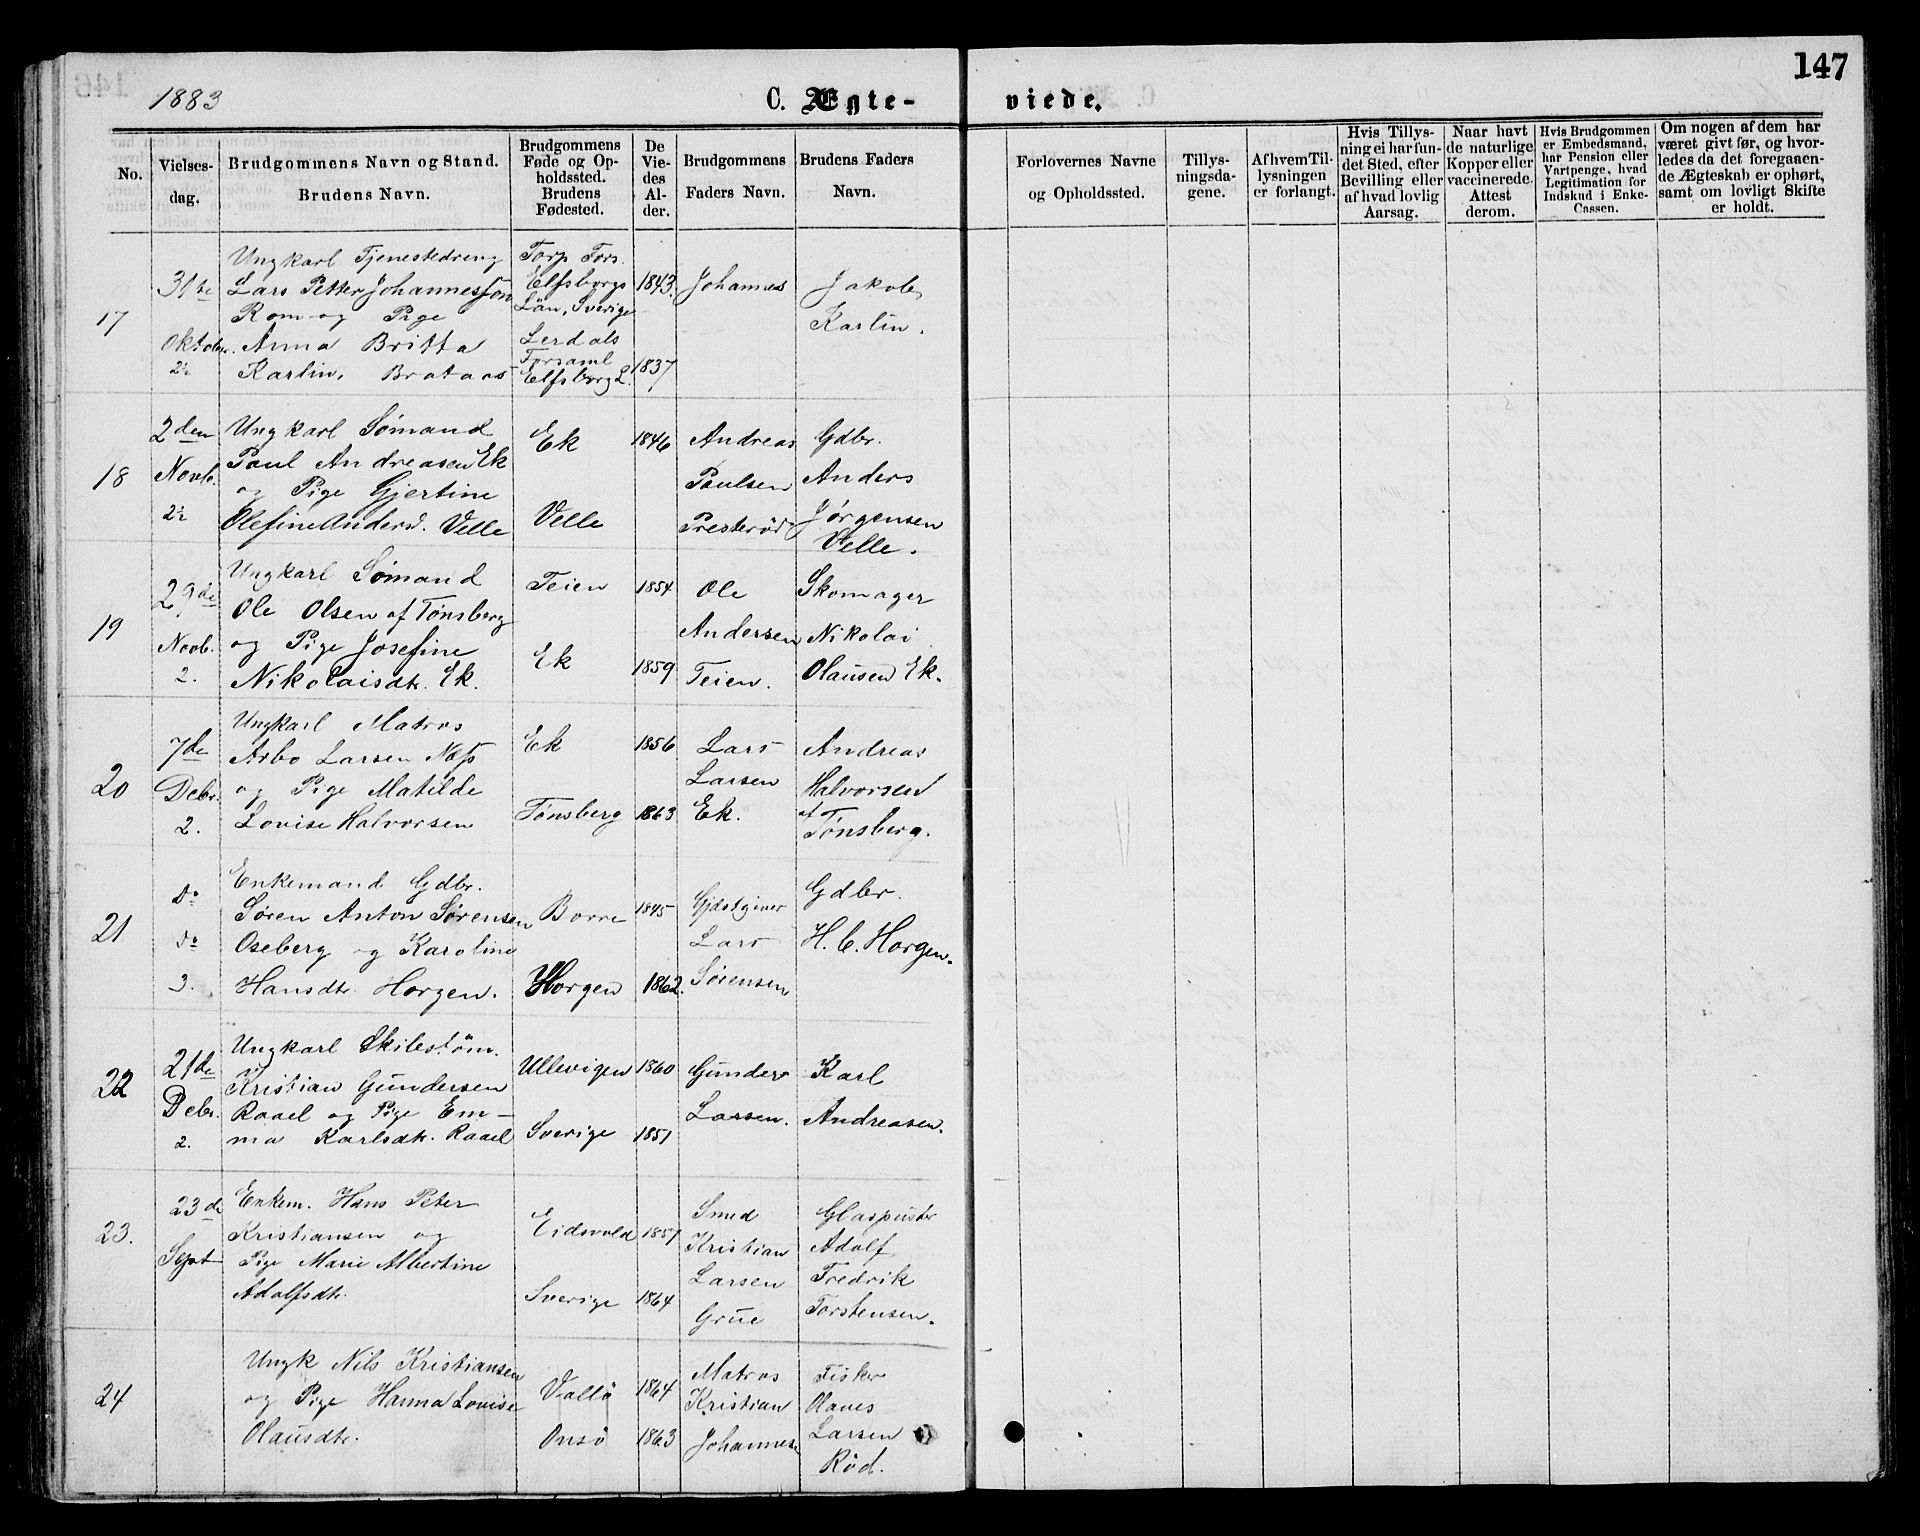 147
1883
C. Ægte- viede.
No.
Vielses-
dag.
Brudgommens Navn og Stand.
Brudens Navn.
Brudgommens
Føde og Op-
holdssted.
Brudens
Fødested.
De
Vie-
des
Al-
der.
Brudgommens
Faders Navn.
Brudens Faders
Navn.
Forlovernes Navne
og Opholdssted.
Tillys-
ningsda-
gene.
Af hvem Til-
lysningen
er forlangt.
Hvis Tillys-
ning ei har fun-
det Sted, efter
Bevilling eller
af hvad lovlig
Aarsag.
Naar havt
de naturlige
Kopper eller
vaccinerede
Attest
derom.
Hvis Brudgommen
er Embedsmand,
har Pension eller
Vartpenge, hvad
Legitimation for
Indskud i Enke-
Cassen.
Om nogen af dem har
været givt før, og hvor-
ledes da det foregaaen-
de Ægteskab er ophørt,
samt om lovligt Skifte
er holdt.
17
31te
Oktober.
2½
Ungkarl Tjenestedreng
Lars Petter Johannesson
Rom og Pige
Anna Britta
Karlin, Brataas
Torp Fors.
Elfsborgs
Län, Sverige
Lerdals
Forsaml
Elfsborg L.
1843.
1837
Johannes
Jakob
Karlin.
18
2den
Novb.
2½
Ungkarl Sømand
Paul Andreasen Ek
og Pige Gjertine
Olefine Andersd. Velle
Ek
Velle
1846
Andreas
Paulsen
Presterød
Gdbr.
Anders
Jørgensen
Velle.
19
29de
Novb.
2.
Ungkarl Sømand
Ole Olsen af Tønsberg
og Pige Josefine
Nikolaisdtr. Ek.
Teien
Ek
1854
1859
Ole
Andersen
Teien.
Skomager
Nikolai
Olausen Ek.
20
7de
Debr.
2.
Ungkarl Matros
Arbo Larsen Næs
og Pige Matilde
Lovise Halvorsen
Ek
Tønsberg
1856
1863
Lars
Larsen
Ek.
Andreas
Halvorsen
af
Tønsberg.
21
do
do
3.
Enkemand Gdbr.
Søren Anton Sørensen
Oseberg og Karoline
Hansdtr. Horgen.
Borre
Horgen
1845
1862.
Gjdstgiver
Lars
Sørensen
Gdbr.
H. C. Horgen.
22
21de
Debr.
2.
Ungkarl Skibstöm.
Kristian Gundersen
Raael og Pige Em-
ma Karlsdtr. Raael
Ullevigen
Sverige
1860
1851
Gunder
Larsen.
Karl
Andreasen.
23.
23de
Sept
Enkem. Hans Peter
Kristiansen og
Pige Marie Albertine
Adolfsdtr.
Eidsvold
Sverige
1857
1864
Smed
Kristian
Larsen
Grue
Glaspuster
Adolf
Fredrik
Torstensen.
24
Ungk Nils Kristiansen
og Pige Hanna Lovise
Olausdtr.
Vallö
Onsö
1864
1863
Matros
Kristian
Johannes
Fisker
Olaves
Larsen
Röd.